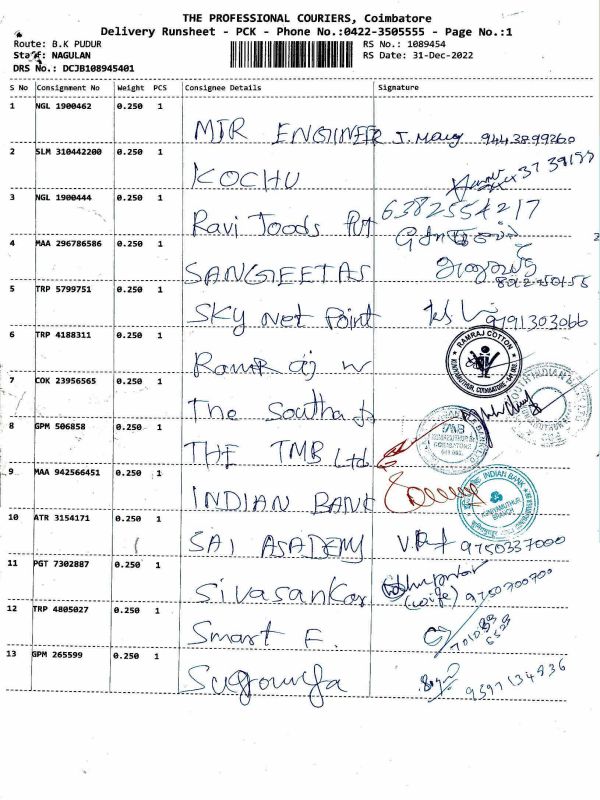 THE PROFESSIONAL COURIERS, Coimbatore
Delivery Runsheet - PCK - Phone No.:0422-3505555 - Page No.:1
Route: B.K PUDUR RS No.: 1089454
Staff: NAGULAN RS Date: 31-Dec-2022
DRS No.: DCJB108945401
S No Consignment No Weight PCS Consignee Details Signature
1 NGL 1900462 0.250 1
MTR ENGINEER 9443899260
2 SLM 310442200 0.250 1
KOCHU
3 NGL 1900444 0.250 1
Ravi Foods Pvt 6382554217
4 MAA 296786586 0.250 1
SANGEETAS
5 TRP 5799751 0.250 1
Sky net Point 9191303066
6 TRP 4188311 0.250 1
RAMRAJ COTTON
Ramraj
7 COK 23956565 0.250 1
The South
8 GPM 506858 0.250 1
TMB
THE TMB Ltd
9 MAA 942566451 0.250 1
INDIAN BANK
INDIAN BANK
10 ATR 3154171 0.250 1
SAI 9750337000
11 PGT 7302887 0.250 1
Sivasankar (wife) 9750700700
12 TRP 4805027 0.250 1
Smart F.
13 GPM 265599 0.250 1
9597134836